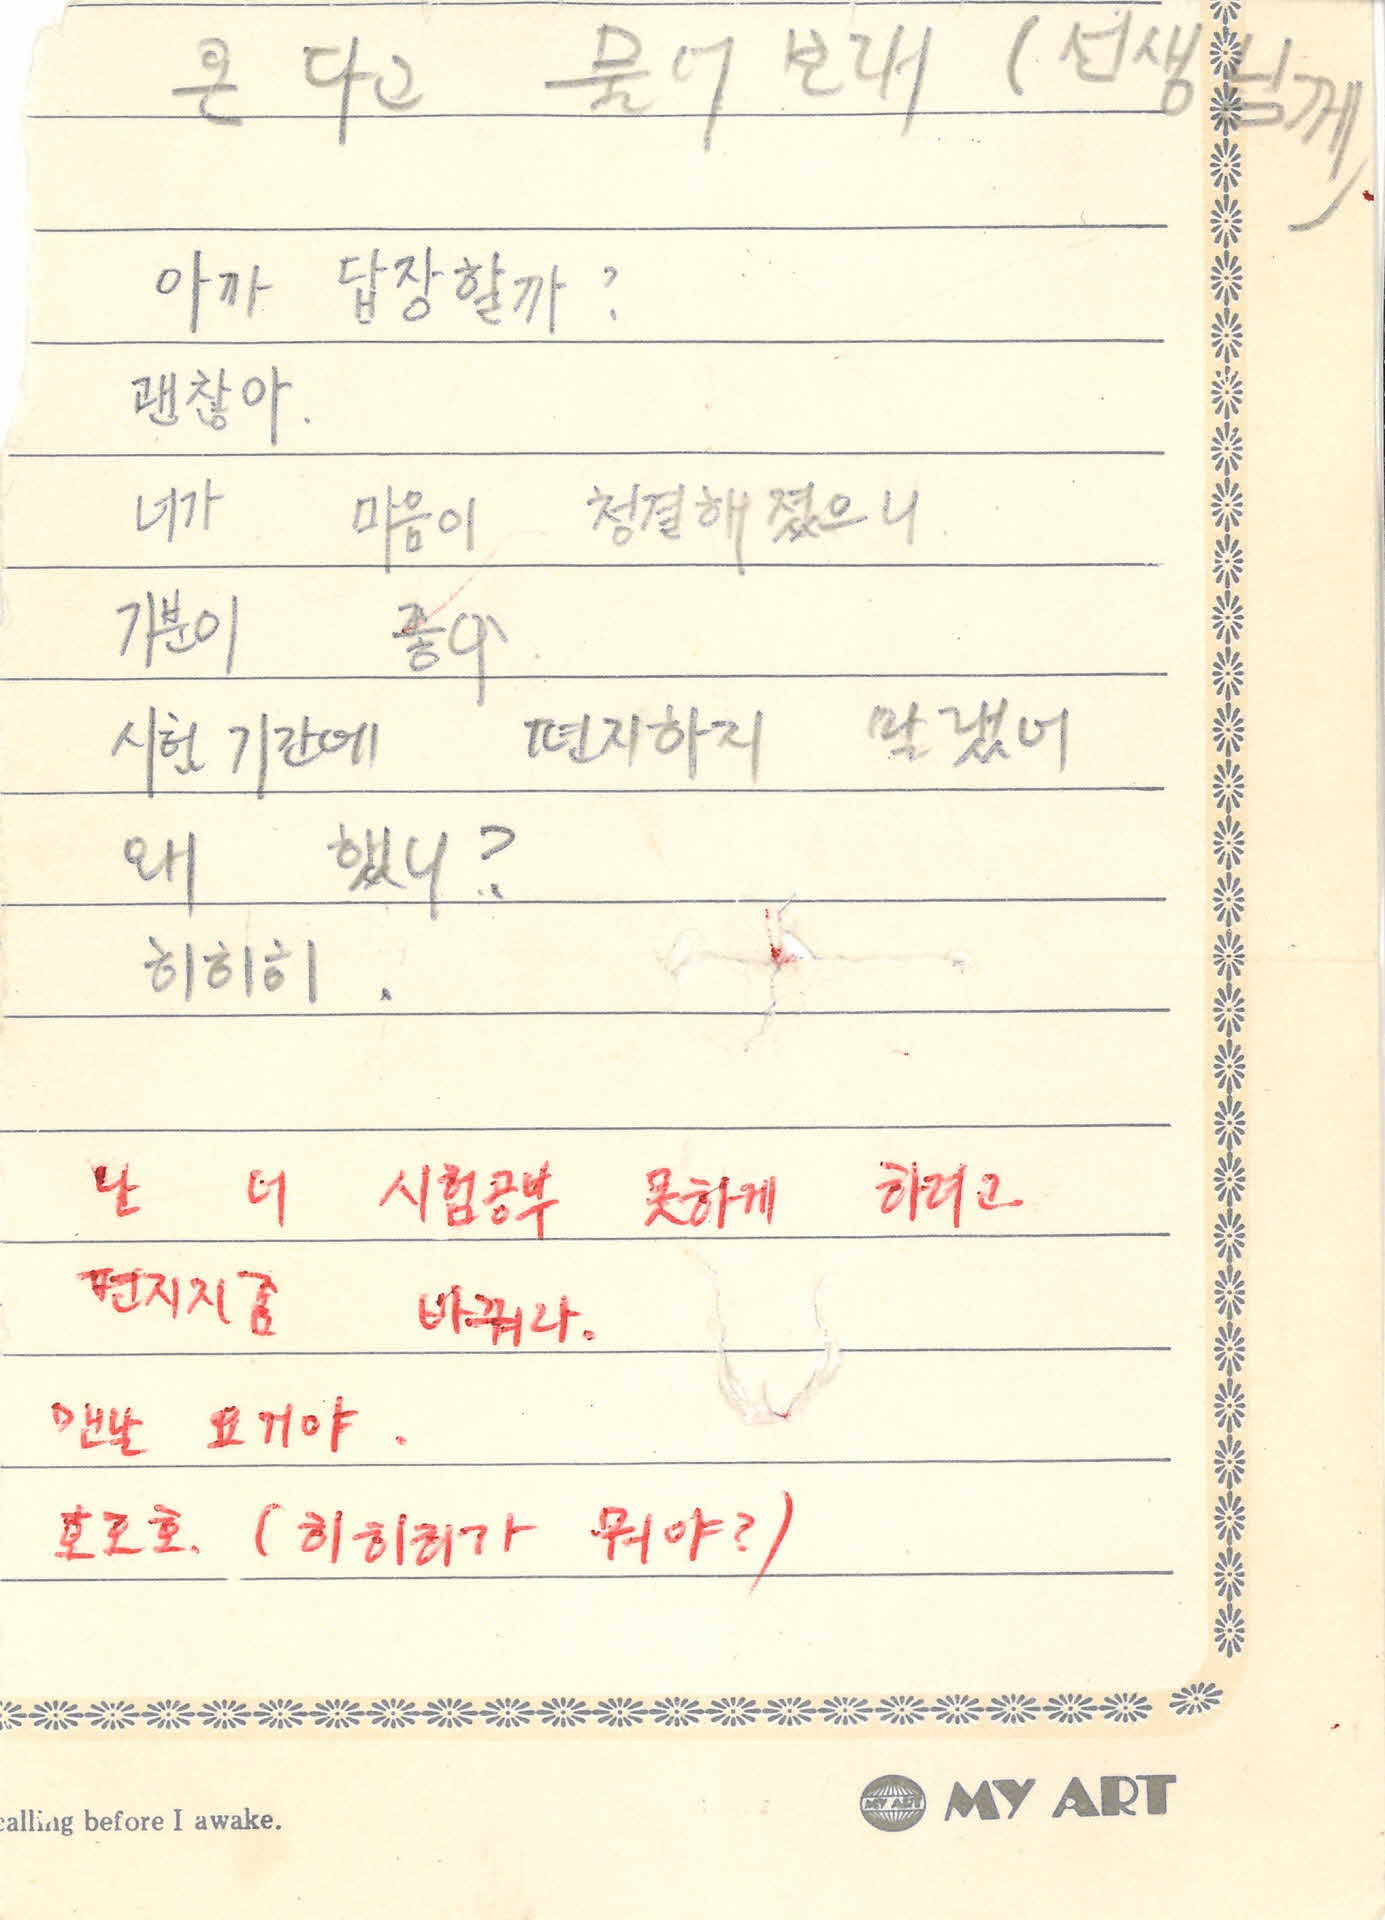 온다고 물어보래 (선생님께)
아까 답장할까?
괜찮아.
너가 마음이 청결해졌으니
기분이 좋아.
시험기간에 편지하지 말랬너
왜 했니?
히히히.
난 너 시험공부 못하게 하려고
편지지좀 바꿔라.
맨날 요거야.
호호호. (히히히가 뭐야?)
calling before I awake.
MY ART
MY ART